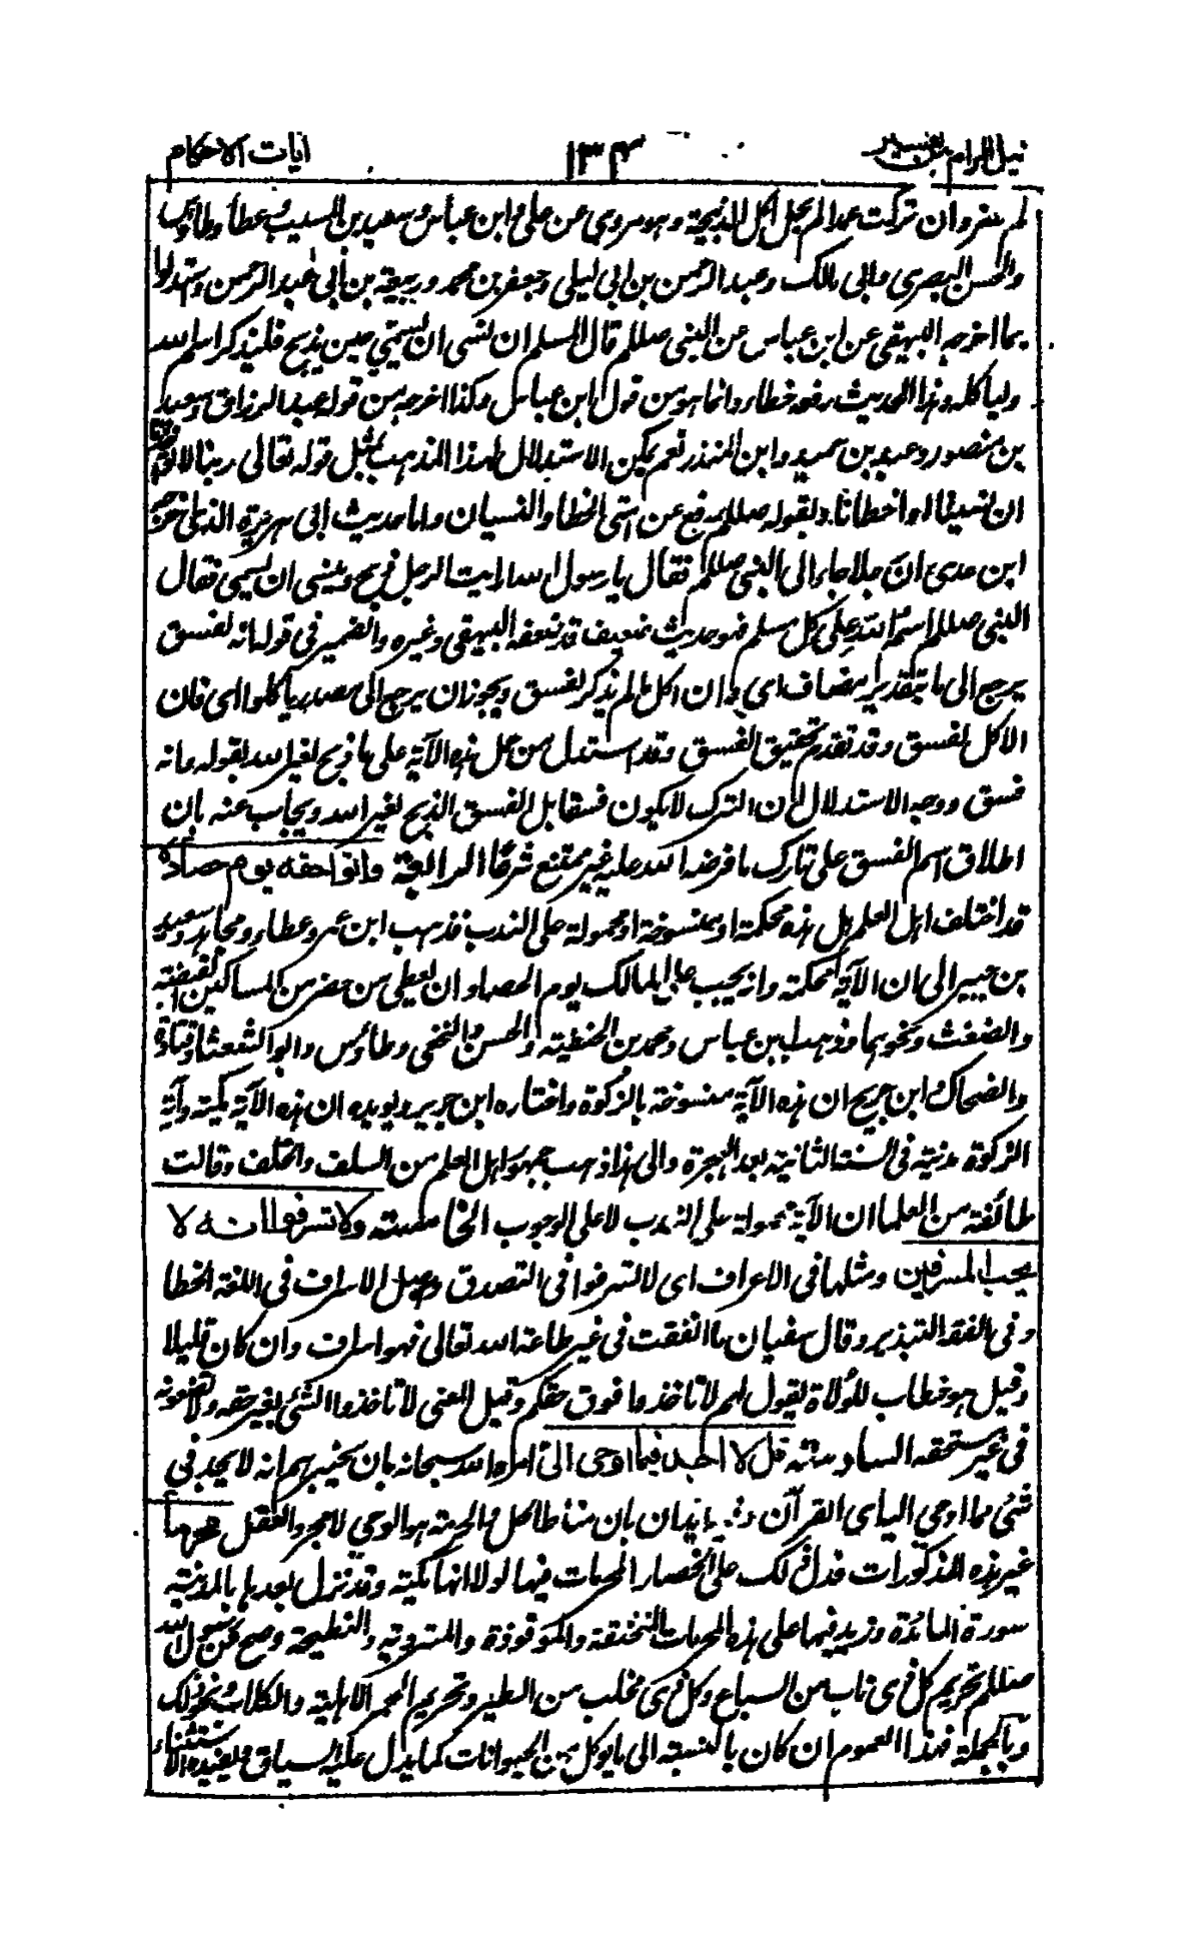 نيل المرام من تفسير ١٣٤ آيات الاحكام
لم يضر وان تركت عمدا لم يحل اكل الذبيحة وهو مروي عن علي وابن عباس وسعيد بن المسيب وعطا وطاؤس
والحسن البصري وابي مالك وعبد الرحمن بن ابي ليلى وجعفر بن محمد وربيعة بن أبي عبد الرحمن واستدلوا
بما اخرجه البيهقي عن ابن عباس عن النبي صللم قال المسلم ان نسي ان يسمي حين يذبح فليذكر اسم الله
وليا كله وهذا الحديث رفعه خطاء وانما هو من قول ابن عباس وكذا اخرجه من قوله عبد الرزاق وسعيد
بن منصور وعبد بن حميد وابن المنذر نعم يمكن الاستدلال لهذا المذهب بمثل قوله تعالى ربنا لا تؤاخذنا
ان نسينا او اخطأنا وبقوله صللم رفع عن امتي الخطا والنسيان واما حديث ابي هريرة الذي اخرجه
ابن عدي ان رجلا جاء الى النبي صللم فقال يا رسول الله ارايت الرجل يذبح وينسى ان يسمي فقال
النبي صللم اسم الله على كل مسلم فهو حديث ضعيف قد ضعفه البيهقي وغيره والضمير في قوله انه لفسق
يرجع الى ما بتقدير مضاف اي وان اكل ما لم يذكر لفسق ويجوز ان يرجع الى مصدر يأكلوا اي فان
الاكل لفسق وقد تقدم تحقيق الفسق وقد استدل من حمل هذه الآية على ما ذبح لغير الله بقوله وانه
فسق ووجه الاستدلال ان الترك لا يكون فسقا بل الفسق الذبح لغير الله ويجاب عنه بان
اطلاق اسم الفسق على تارك ما فرضه الله عليه غير ممتنع شرعًا الرابعة واتوا حقه يوم حصاده
قد اختلف اهل العلم هل هذه محكمة او منسوخة او محمولة على الندب فذهب ابن عمر وعطاء ومجاهد وسعيد
بن جبير الى ان الآية محكمة وانه يجب على المالك يوم الحصاد ان يعطي من حضر من المساكين القبضة
والضغث ونحوهما وذهب ابن عباس ومحمد بن الحنفية والحسن والنخعي وطاؤس وابو الشعثا وقتادة
والضحاك وابن جريج ان هذه الآية منسوخة بالزكوة واختاره ابن جرير ويؤيده ان هذه الآية مكية وآية
الزكوة مدنية في السنة الثانية بعد الهجرة والى هذا ذهب جمهور اهل العلم من السلف والخلف وقالت
طائفة من العلماء ان الآية محمولة على الندب لا على الوجوب الخامسة ولا تسرفوا انه لا
يحب المسرفين ومثلها في الاعراف اي لا تسرفوا في التصدق واصل الاسراف في اللغة الخطا
وفي الفقه التبذير وقال سفيان ما انفقت في غير طاعة الله تعالى فهو اسراف وان كان قليلا
وقيل هو خطاب للولاة يقول لهم لا تأخذوا فوق حقكم وقيل المعنى لا تأخذوا الشئ بغير حقه ولا تضعونه
في غير مستحقه السادسة قل لا اجد فيما اوحي الى امره الله سبحانه بان يخبرهم انه لا يجد في
شئ مما اوحي اليه اي القرآن وفيه ايذان بان مناط الحل والحرمة هو الوحي لا مجرد العقل محرما
غير هذه المذكورات فدل ذلك على انحصار المحرمات فيها لولا انها مكية وقد نزل بعدها بالمدينة
سورة المائدة وزيد فيها على هذه المحرمات المنخنقة والموقوذة والمتردية والنطيحة وصح عن رسول الله
صللم تحريم كل ذي ناب من السباع وكل ذي مخلب من الطير وتحريم الحمر الاهلية والكلاب ونحو ذلك
وبالجملة فهذا العموم ان كان بالنسبة الى ما يوكل من الحيوانات كما يدل عليه السياق ويفيده الاستثناء